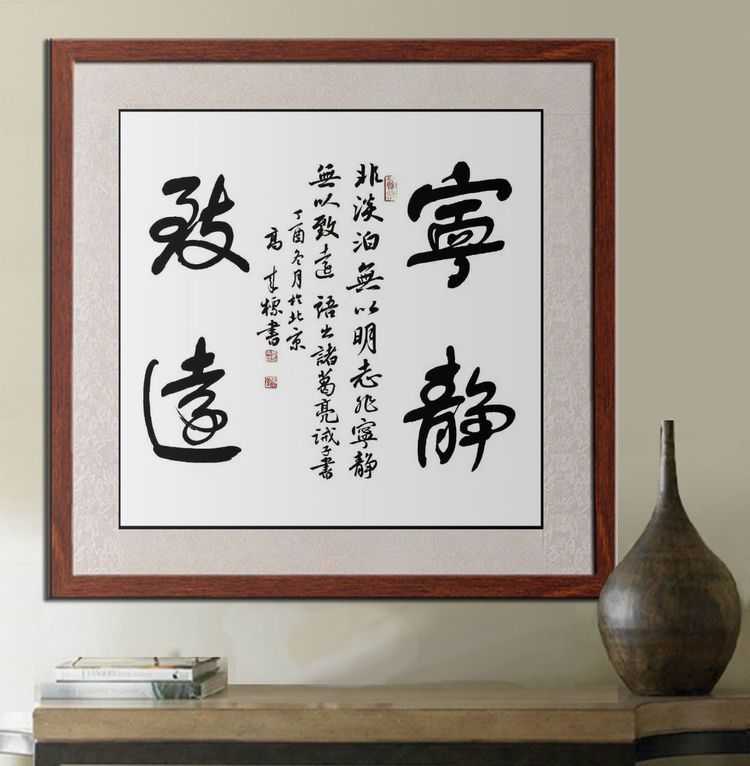 寧静
非淡泊無以明志非寧静
無以致遠 語出諸葛亮誡子書
丁酉冬月於北京
高 標書
致遠